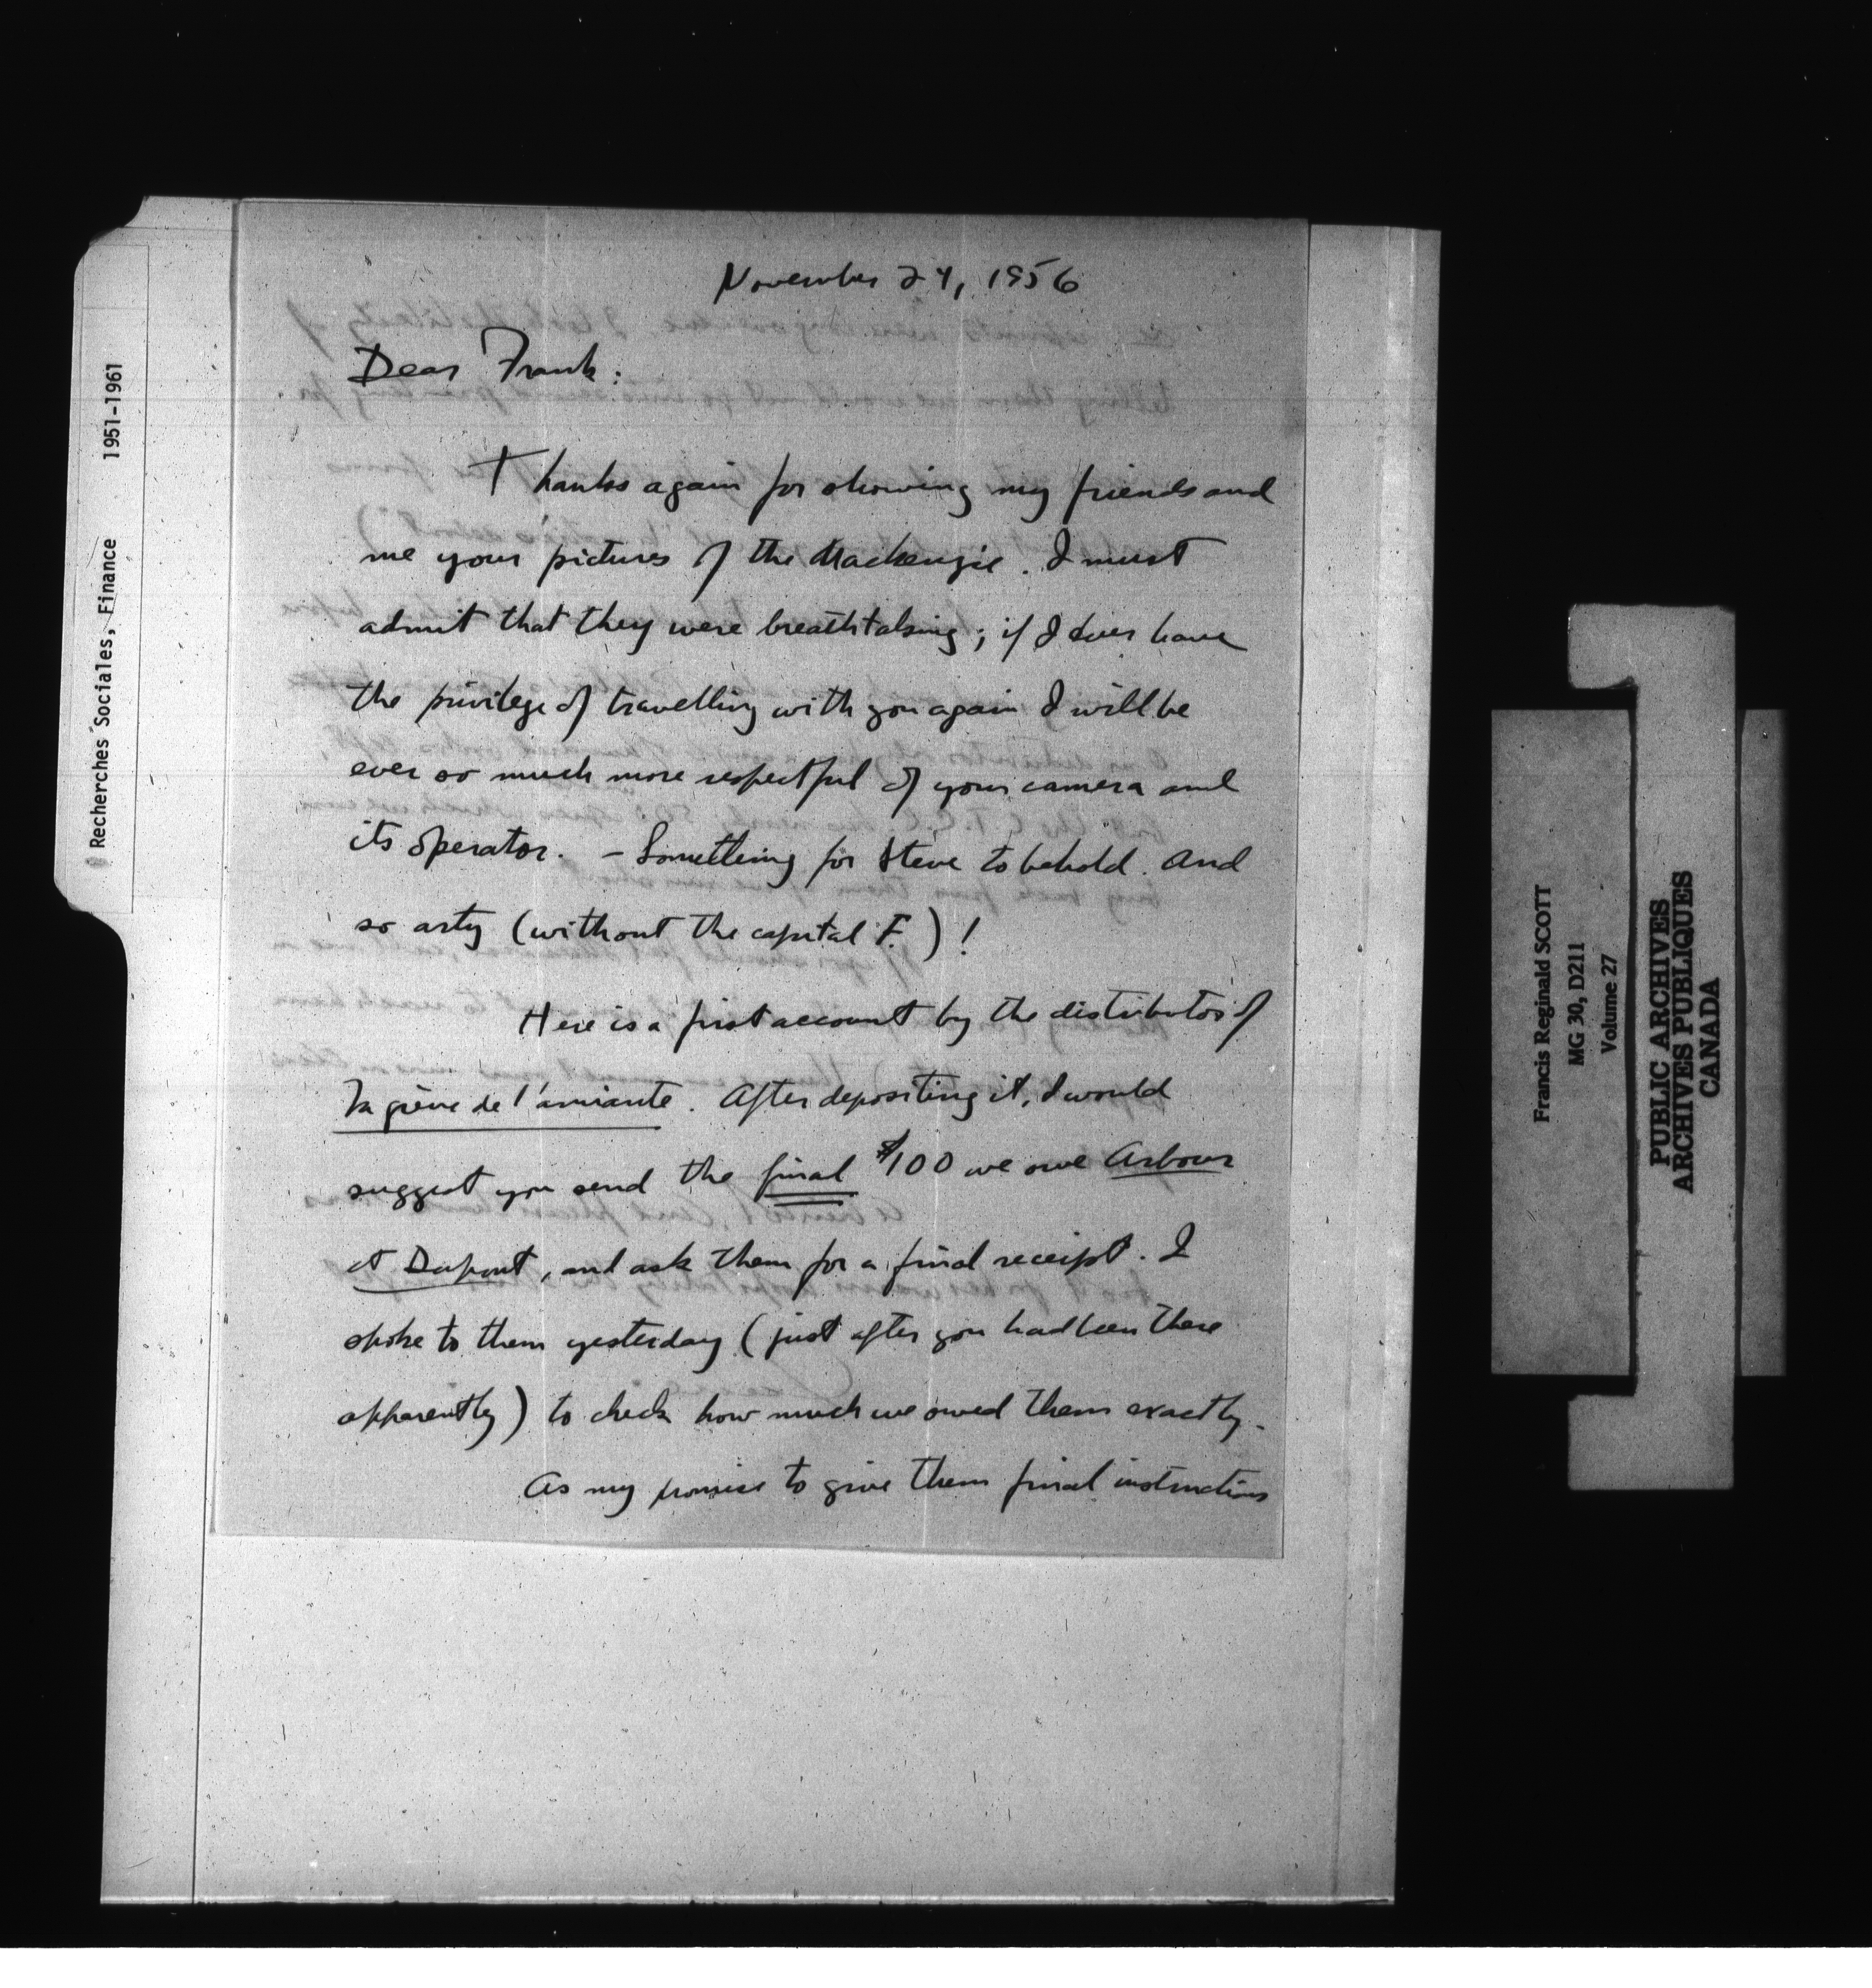 November 24, 1956
Dear Frank:
Thanks again for showing my friends and
me your pictures of the Mackenzie. I must
admit that they were breathtaking; if I ever have
the privilege of travelling with you again I will be
ever so much more respectful of your camera and
its operator. - Something for Steve to behold. And
so arty (without the capital F.)!
Here is a first account by the distributor of
La grève de l'amiante. After depositing it, I would
suggest you send the final $100 we owe Arbour
et Dupont, and ask them for a final receipt. I
spoke to them yesterday (just after you had been there
apparently) to check how much we owed them exactly.
As my promise to give them final instructions
Recherches Sociales, Finance 1951-1961
Francis Reginald SCOTT
MG 30, D211
Volume 27
PUBLIC ARCHIVES
ARCHIVES PUBLIQUES
CANADA